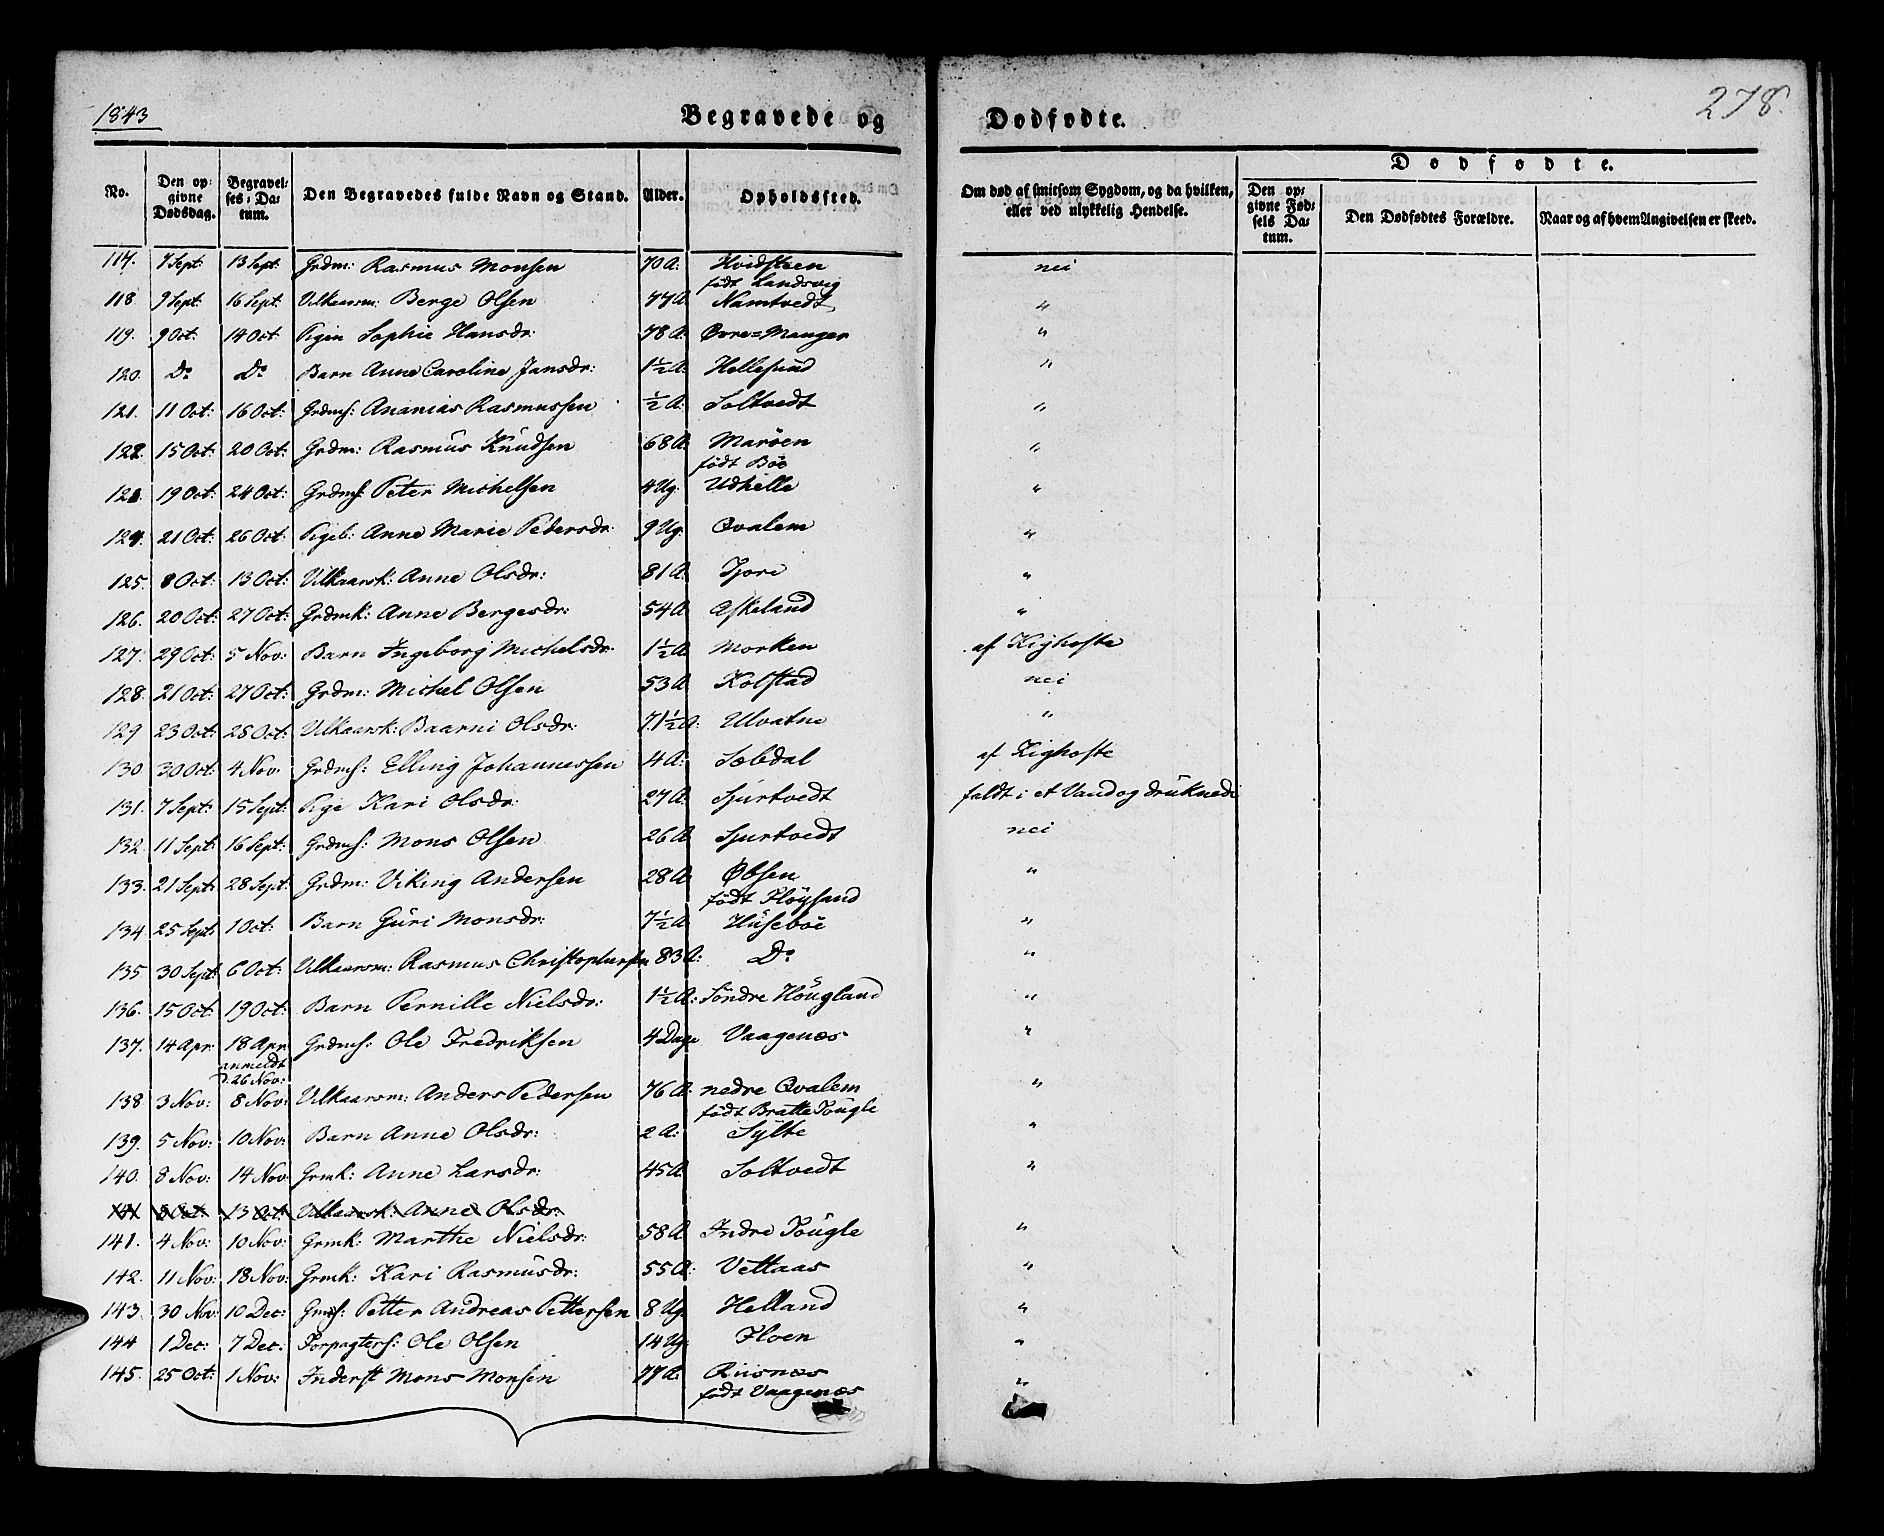 1843
Begravede og Dødfødte.
278.
No.
Den opgivne Dødsdag.
Begravelses-Datum.
Den Begravedes fulde Navn og Stand.
Alder.
Opholdssted.
Om død af smitsom Sygdom, og da hvilken, eller ved ulykkelig Hendelse.
Dødfødte.
Den opgivne Fødsels Datum.
Den Dødfødtes Forældre.
Naar og af hvem Angivelsen er skeed.
117. 7 Sept: 13 Sept: Grdm: Rasmus Monsen 70 A: Hvidsteen nei
født Landsvig
118 9 Sept: 16 Sept: Vilkaarsm: Berge Olsen 77 A Namtvedt "
119. 9 Oct: 14 Oct: Pigen Sophie Hansdr: 78 A: Øvre=Manger "
120. Do Do Barn Anne Caroline Jansdr: 1½ A: Hellesund "
121. 11 Oct: 16 Oct: Grdms: Ananias Rasmussen ½ A: Soltvedt "
122. 15 Oct: 20 Oct: Grdm: Rasmus Knudsen 68 A: Marøen "
født Bøe
123. 19 Oct: 24 Oct: Grdms: Peter Michelsen 4 Ug. Udhelle "
124. 21 Oct: 26 Oct: Pigeb: Anne Marie Pedersdr: 9 Ug. Qvalem "
125. 8 Oct: 13 Oct: Vilkaarsk: Anne Olsdr: 81 A: Tjore "
126. 20 Oct: 27 Oct: Grdmk: Anne Bergesdr: 54 A: Askeland "
127. 29 Oct: 5 Nov: Barn Ingeborg Michelsdr: 1½ A: Morken af Kighoste
128. 21 Oct: 27 Oct: Grdm: Michel Olsen 53 A Kolstad nei
129 23 Oct: 28 Oct: Vilkaarsk: Baarni Olsdr: 71½ A: Ulvatne "
130. 30 Oct: 4 Nov. Grdms: Elling Johannessen 4 A: Sæbdal af Kighoste
131. 7 Sept: 15 Sept: Pige Kari Olsdr: 27 A: Sjurtvedt faldt i et Vand og druknede
132. 11 Sept: 16 Sept: Grdms: Mons Olsen 26 A Sjurtvedt nei
133. 21 Sept: 28 Sept: Grdm: Viking Andersen 28 A: Øbsen "
født Fløysand
134. 25 Sept: 1 Oct: Barn Guri Monsdr: 7½ A Husebøe "
135 30 Sept: 6 Oct: Vilkaarsm: Rasmus Christophersen 83 A: Do "
136. 15 Oct: 19 Oct: Barn Pernille Nielsdr: 1½ A: Søndre Høugland "
137. 14 Apr: 18 Apr Grdms: Ole Fredriksen 4 Dage Vaagenæs "
anmeldt
d. 26 Nov:
138 3 Nov: 8 Nov: Vilkaarsm: Anders Pedersen 76 A: nedre Qvalem "
født Bratte Tougle
139. 5 Nov: 10 Nov: Barn Anne Olsdr: 2 A: Sylte "
140. 8 Nov: 14 Nov Grmk: Anne Larsdr: 45 A Soltvedt "
141 8 Oct: 13 Oct: Vilkaarsk: Anne Olsdr:
141. 4 Nov: 10 Nov: Grmk: Marthe Nielsdr: 58 A Indre Tougle "
142. 11 Nov: 18 Nov: Grmk: Kari Rasmusdr: 55 A: Vettaas "
143. 30 Nov: 10 Dec: Grms: Petter Andreas Pettersen 8 Ug. Helland "
144 1 Dec: 7 Dec: Forpagters: Ole Olsen 14 Ug. Floen "
145. 25 Oct: 1 Nov: Inderst Mons Monsen 77 A: Riisnæs "
født Vaagenæs